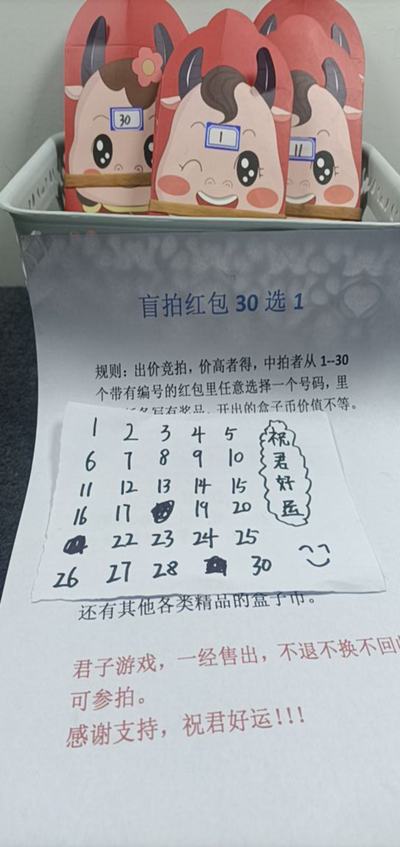 30
1
11
盲拍红包 30 选 1
规则：出价竞拍，价高者得，中拍者从 1--30
个带有编号的红包里任意选择一个号码，里
写有奖品，开出的盒子币价值不等。
1 2 3 4 5
6 7 8 9 10
11 12 13 14 15
16 17 19 20
22 23 24 25
26 27 28 30
祝
君
好
运
还有其他各类精品的盒子币。
君子游戏，一经售出，不退不换不回
可参拍。
感谢支持，祝君好运!!!